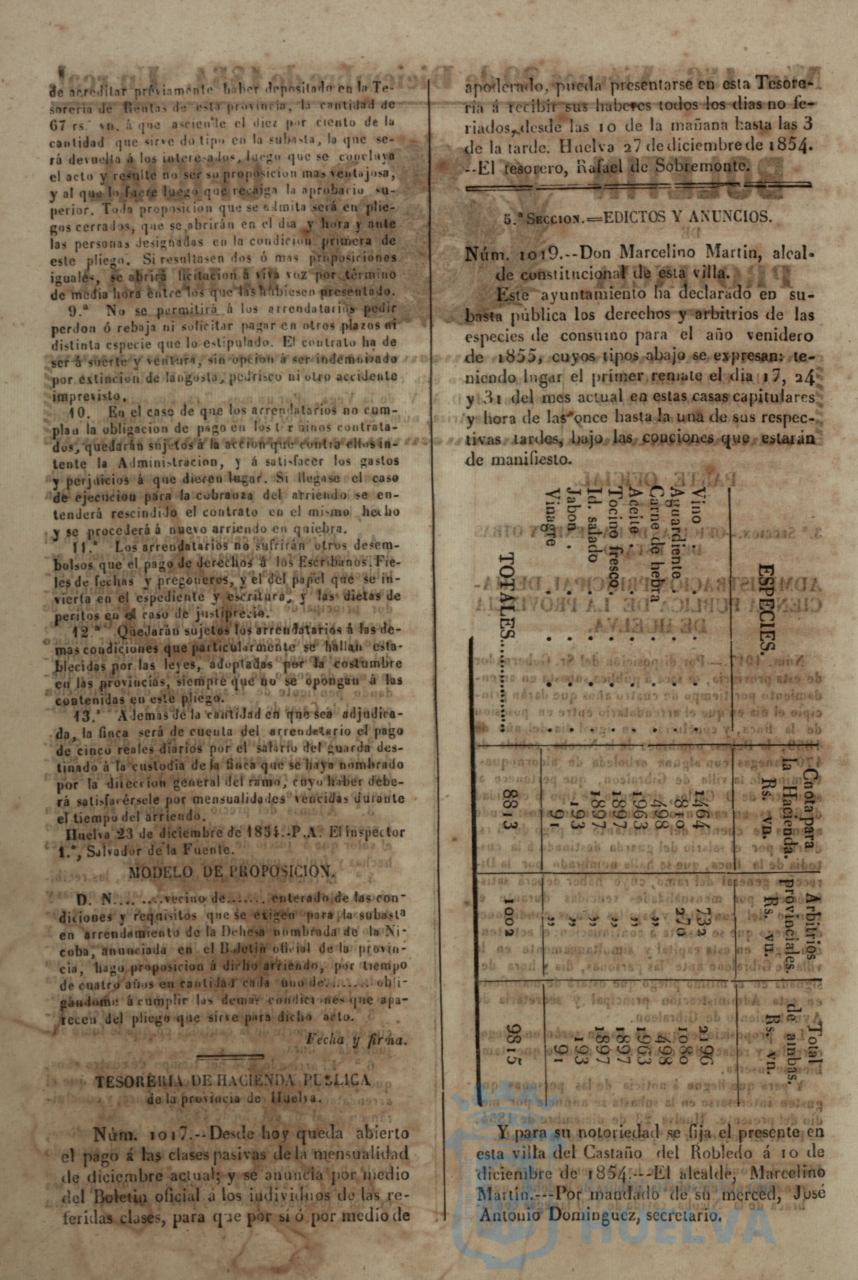 de acreditar préviamente haber depositado en la Te-
soreria de Rentas de esta provincia, la cantidad de
67 rs. vn. á que asciende el diez por ciento de la
cantidad que sirve do tipo en la subasta, la que se-
rá devuelta á los interesados, luego que se concluya
el acto y resulte no ser su proposicion mas ventajosa,
y al que lo fuere luego que recaiga la aprobacio su-
perior. Toda proposicion que se admita será en plie-
gos cerrados, que se abrirán en el dia y hora y ante
las personas designadas en la condicion primera de
este pliego. Si resultasen dos ó mas proposiciones
iguales, se abrirá licitacion á viva voz por término
de media hora entre los que las hubiesen presentado.
9.ª No se permitirá á los arrendatarios pedir
perdon ó rebaja ni solicitar pagar en otros plazos ni
distinta especie que lo estipulado. El contrato ha de
ser á suerte y ventura, sin opcion á ser indemnizado
por extincion de langosta, pedrisco ni otro accidente
imprevisto.
10. En el caso de que los arrendatarios no cum-
plan la obligacion de pago en los términos contrata-
dos, quedarán sujetos á la accion que contra ellos in-
tente la Administracion, y á satisfacer los gastos
y perjuicios á que dieren lugar. Si llegase el caso
de ejecucion para la cobranza del arriendo se en-
tenderá rescindido el contrato en el mismo hecho
y se procederá á nuevo arriendo en quiebra.
11.ª Los arrendatarios no sufrirán otros desem-
bolsos que el pago de derechos á los Escribanos, Fie-
les de fechas y pregoneros, y el del papel que se in-
vierta en el espediente y escritura, y las dietas de
peritos en el caso de justiprecio.
12.ª Quedarán sujetos los arrendatarios á las de-
mas condiciones que particularmente se hallan esta-
blecidas por las leyes, adoptadas por la costumbre
en las provincias, siempre que no se opongan á las
contenidas en este pliego.
13.ª Ademas de la cantidad en que sea adjudica-
da, la finca será de cuenta del arrendatario el pago
de cinco reales diarios por el salario del guarda des-
tinado á la custodia de la finca que se haya nombrado
por la direccion general del ramo, cuyo haber debe-
rá satisfacérsele por mensualidades vencidas durante
el tiempo del arriendo.
Huelva 23 de diciembre de 1854.-P.A. El inspector
1.º, Salvador de la Fuente.
MODELO DE PROPOSICION.
D. N.... ....vecino de....... enterado de las con-
diciones y requisitos que se exigen para la subasta
en arrendamiento de la Dehesa nombrada de la Ni-
coba, anunciada en el Boletin oficial de la provin-
cia, hago proposicion á dicho arriendo, por tiempo
de cuatro años en cantidad cada uno de........ obli-
gándome á cumplir las demas condiciones que apa-
recen del pliego que sirve para dicho acto.
Fecha y firma.
TESORERIA DE HACIENDA PUBLICA
de la provincia de Huelva.
Núm. 1017.--Desde hoy queda abierto
el pago á las clases pasivas de la mensualidad
de diciembre actual; y se anuncia por medio
del Boletin oficial á los individuos de las re-
feridas clases, para que por si ó por medio de
apoderado, pueda presentarse en esta Tesore-
ria á recibir sus haberes todos los dias no fe-
riados, desde las 10 de la mañana hasta las 3
de la tarde. Huelva 27 de diciembre de 1854.
--El tesorero, Rafael de Sobremonte.
5.ª SECCION.=EDICTOS Y ANUNCIOS.
Núm. 1019.--Don Marcelino Martin, alcal-
de constitucional de esta villa.
Este ayuntamiento ha declarado en su-
basta pública los derechos y arbitrios de las
especies de consumo para el año venidero
de 1855, cuyos tipos abajo se expresan: te-
niendo lugar el primer remate el dia 17, 24
y 31 del mes actual en estas casas capitulares
y hora de las once hasta la una de sus respec-
tivas tardes, bajo las condiciones que estarán
de manifiesto.
ESPECIES. Cuota para la Hacienda. Rs. vn. Arbitrios provinciales. Rs. vn. Total de ambas. Rs. vn.
Vino . . . 1464 732 2196
Aguardiente . . . 810 270 1080
Carne de hebra . . . 498 » 498
Aceite . . . 1963 » 1963
Tocino fresco. . . . 1897 » 1897
Id. salado . . . 1897 » 1897
Jabon . . . . 193 » 193
Vinagre . . . 91 » 91
TOTALES................... 8813 1002 9815
Y para su notoriedad se fija el presente en
esta villa del Castaño del Robledo á 10 de
diciembre de 1854.---El alcalde, Marcelino
Martin.---Por mandado de su merced, José
Antonio Dominguez, secretario.
HUELVA